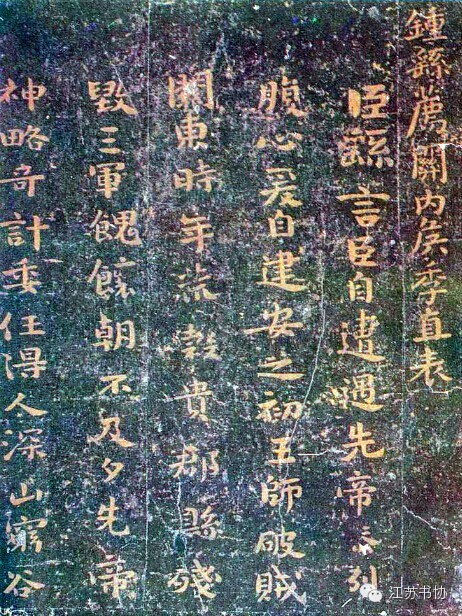 鍾繇薦關內侯季直表
臣繇言臣自遭遇先帝忝列
腹心爰自建安之初王師破賊
關東時年荒穀貴郡縣殘
毀三軍餽饟朝不及夕先帝
神略奇計委任得人深山窮谷
江苏书协